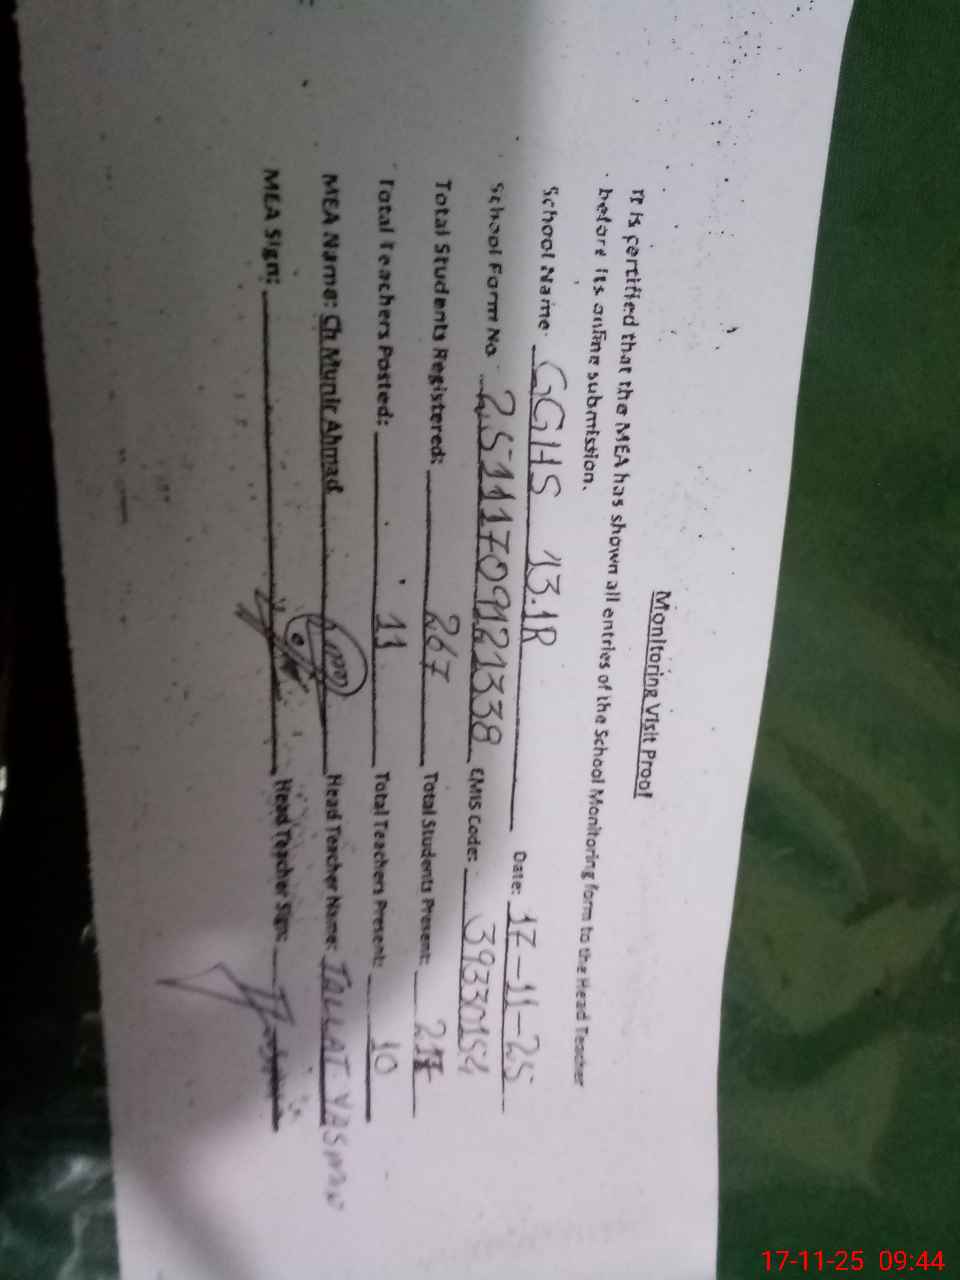 Monitoring Visit Proof
It is certified that the MEA has shown all entries of the School Monitoring form to the Head Teacher
before its online submission.
School Name: GGHS 13.1R Date: 17-11-25
School Form No. 25111709121338 EMIS Code: 39330154
Total Students Registered: 267 Total Students Present:
Total Teachers Posted: 11 Total Teachers Present: 10
MEA Name: Ch Munir Ahmad Head Teacher Name: TALLAT
MEA Sign: Head Teacher Sign:
17-11-25 09:44